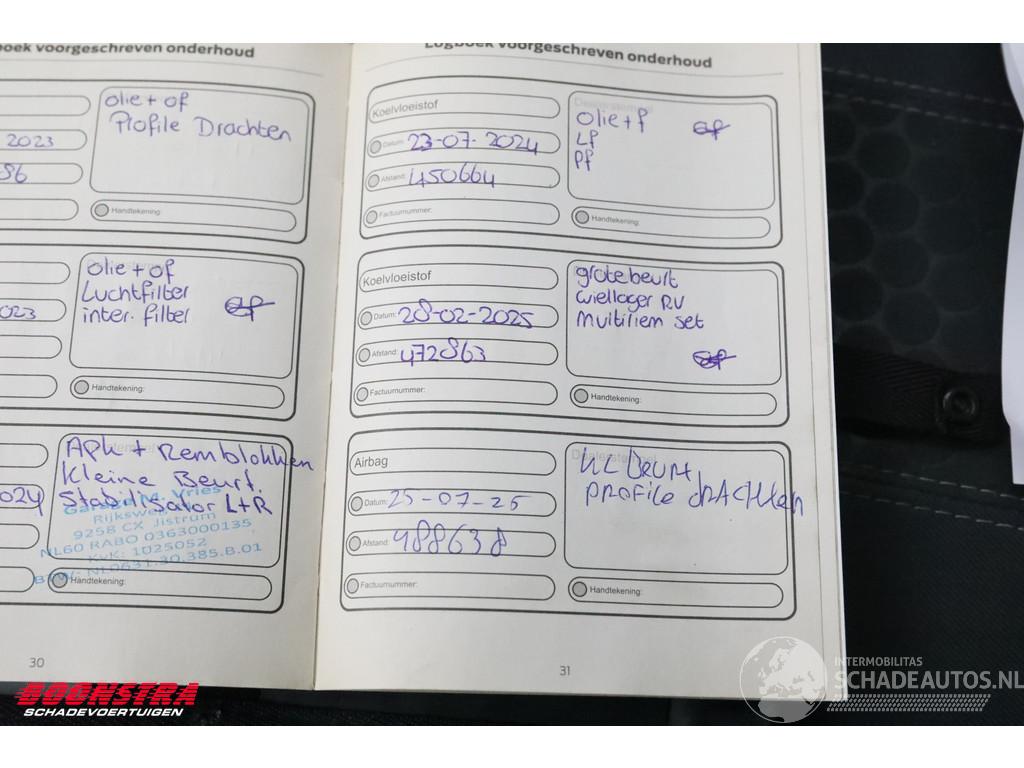 oek voorgeschreven onderhoud
olie + of
Profile Drachten
2023
86
Handtekening:
olie + of
Luchtfilter
inter. filter
023
Handtekening:
APK + Remblokken
Kleine Beurt.
Stabilisator L+R
Vries
Rijksweg
9258 CX Jistrum
NL60 RABO 0363000135
KvK: 1025052
NL0631.30.385.B.01
024
Handtekening:
30
Logboek voorgeschreven onderhoud
Koelvloeistof
Datum: 23-07-2024
Afstand: 450664
Factuurnummer:
olie + f
Lf
Pf
Handtekening:
Koelvloeistof
Datum: 28-02-2025
Afstand: 472863
Factuurnummer:
grote beurt
wiellager RV
Multiriem set
Handtekening:
Airbag
Datum: 25-07-25
Afstand: 488638
Factuurnummer:
KL Beurt
PROFILE dRACHten
Handtekening:
31
BOONSTRA
SCHADEVOERTUIGEN
INTERMOBILITAS
SCHADEAUTOS.NL